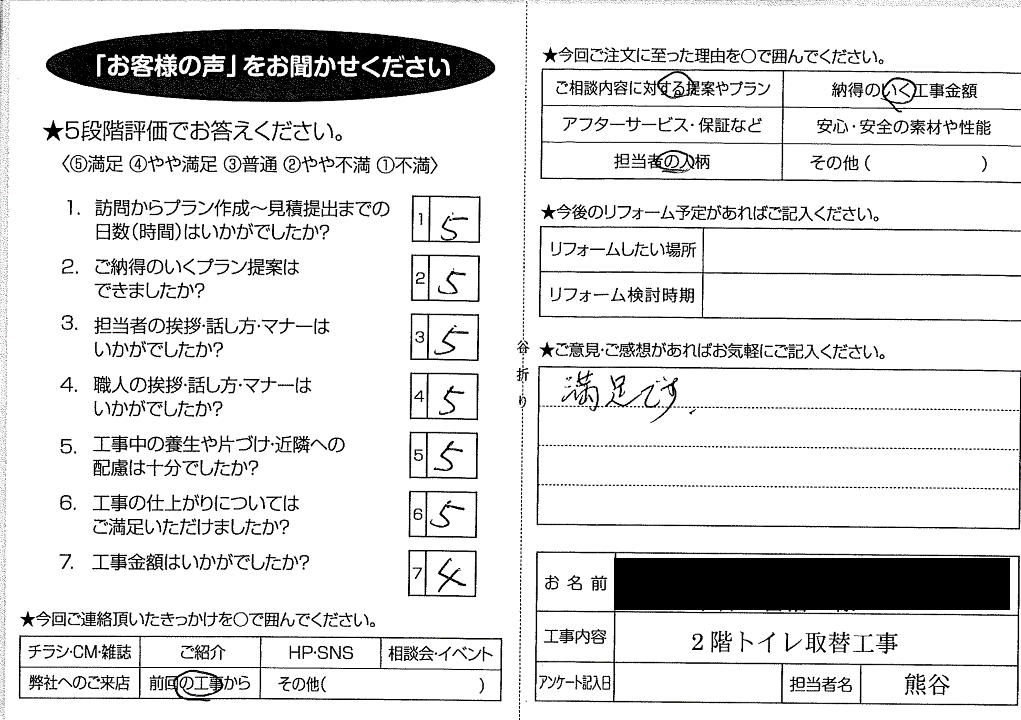 「お客様の声」をお聞かせください
★5段階評価でお答えください。
〈⑤満足 ④やや満足 ③普通 ②やや不満 ①不満〉
1. 訪問からプラン作成〜見積提出までの
日数(時間)はいかがでしたか?
1 5
2. ご納得のいくプラン提案は
できましたか?
2 5
3. 担当者の挨拶・話し方・マナーは
いかがでしたか?
3 5
4. 職人の挨拶・話し方・マナーは
いかがでしたか?
4 5
5. 工事中の養生や片づけ・近隣への
配慮は十分でしたか?
5 5
6. 工事の仕上がりについては
ご満足いただけましたか?
6 5
7. 工事金額はいかがでしたか?
7 4
★今回ご連絡頂いたきっかけを○で囲んでください。
チラシ・CM・雑誌 ご紹介 HP・SNS 相談会・イベント
弊社へのご来店 前回の工事から その他( )
谷折り
★今回ご注文に至った理由を○で囲んでください。
ご相談内容に対する提案やプラン 納得のいく工事金額
アフターサービス・保証など 安心・安全の素材や性能
担当者の人柄 その他( )
★今後のリフォーム予定があればご記入ください。
リフォームしたい場所
リフォーム検討時期
★ご意見・ご感想があればお気軽にご記入ください。
満足です.
お名前
工事内容 2階トイレ取替工事
アンケート記入日 担当者名 熊谷